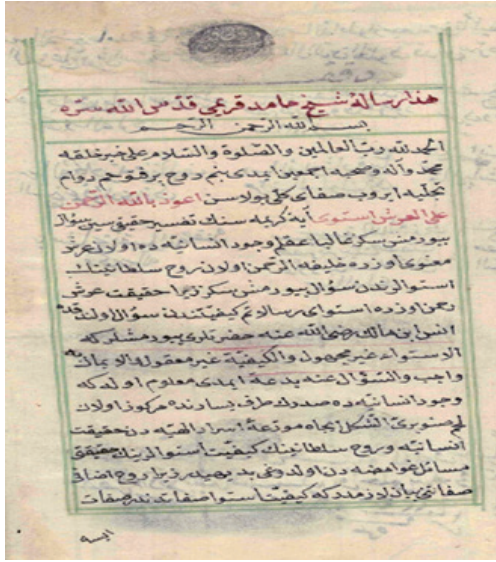 هذا رسالهٔ شيخ حامد قريمى قدّس الله سرّه
بسم الله الرّحمن الرّحيم
الحمد لله ربّ العالمين والصّلوة والسّلام على خير خلقه
محمّد وآله وصحبه اجمعين ايمدى بنم روح پر فتوحم دوام
تجليه ايروب صفاى كلّى بولاسن اعوذ بالله الرّحمن
على العرش استوى آية كريمه سنك تفسير حقيقى سين سؤال
بيورمش سكز غالبا عقلم وجود انسانيّه ده اولان عرش
معنوى اوزره خليفة الرّحمن اولان روح سلطانينك
استوالرندن سؤال بيورمش سكز زيرا حقيقت عرش
رحمن اوزره استواى كيفيتندن سؤال اولندقده
انس ابن مالك رضى الله عنه حضرتلرى بيورمشلركه
الاستواء غير مجهول والكيفيّة غير معقولة والايمان به
واجب والسّؤال عنه بدعة ايمدى معلوم اوله كه
وجود انسانيّه ده صدرك طرف يسارنده مركوز اولان
لحم صنوبرىّ الشّكل اسرار الهيّه دن حقيقت
انسانيّه وروح سلطانينك كيفيّت استوالرينك حقيقتى
مسائل غوامضه دن اولدوغى بديهيدر زيرا روح اضافى
صفاتنى بيان لازمدر كه كيفيّت استوا صفاتندندر صفات
ايسه